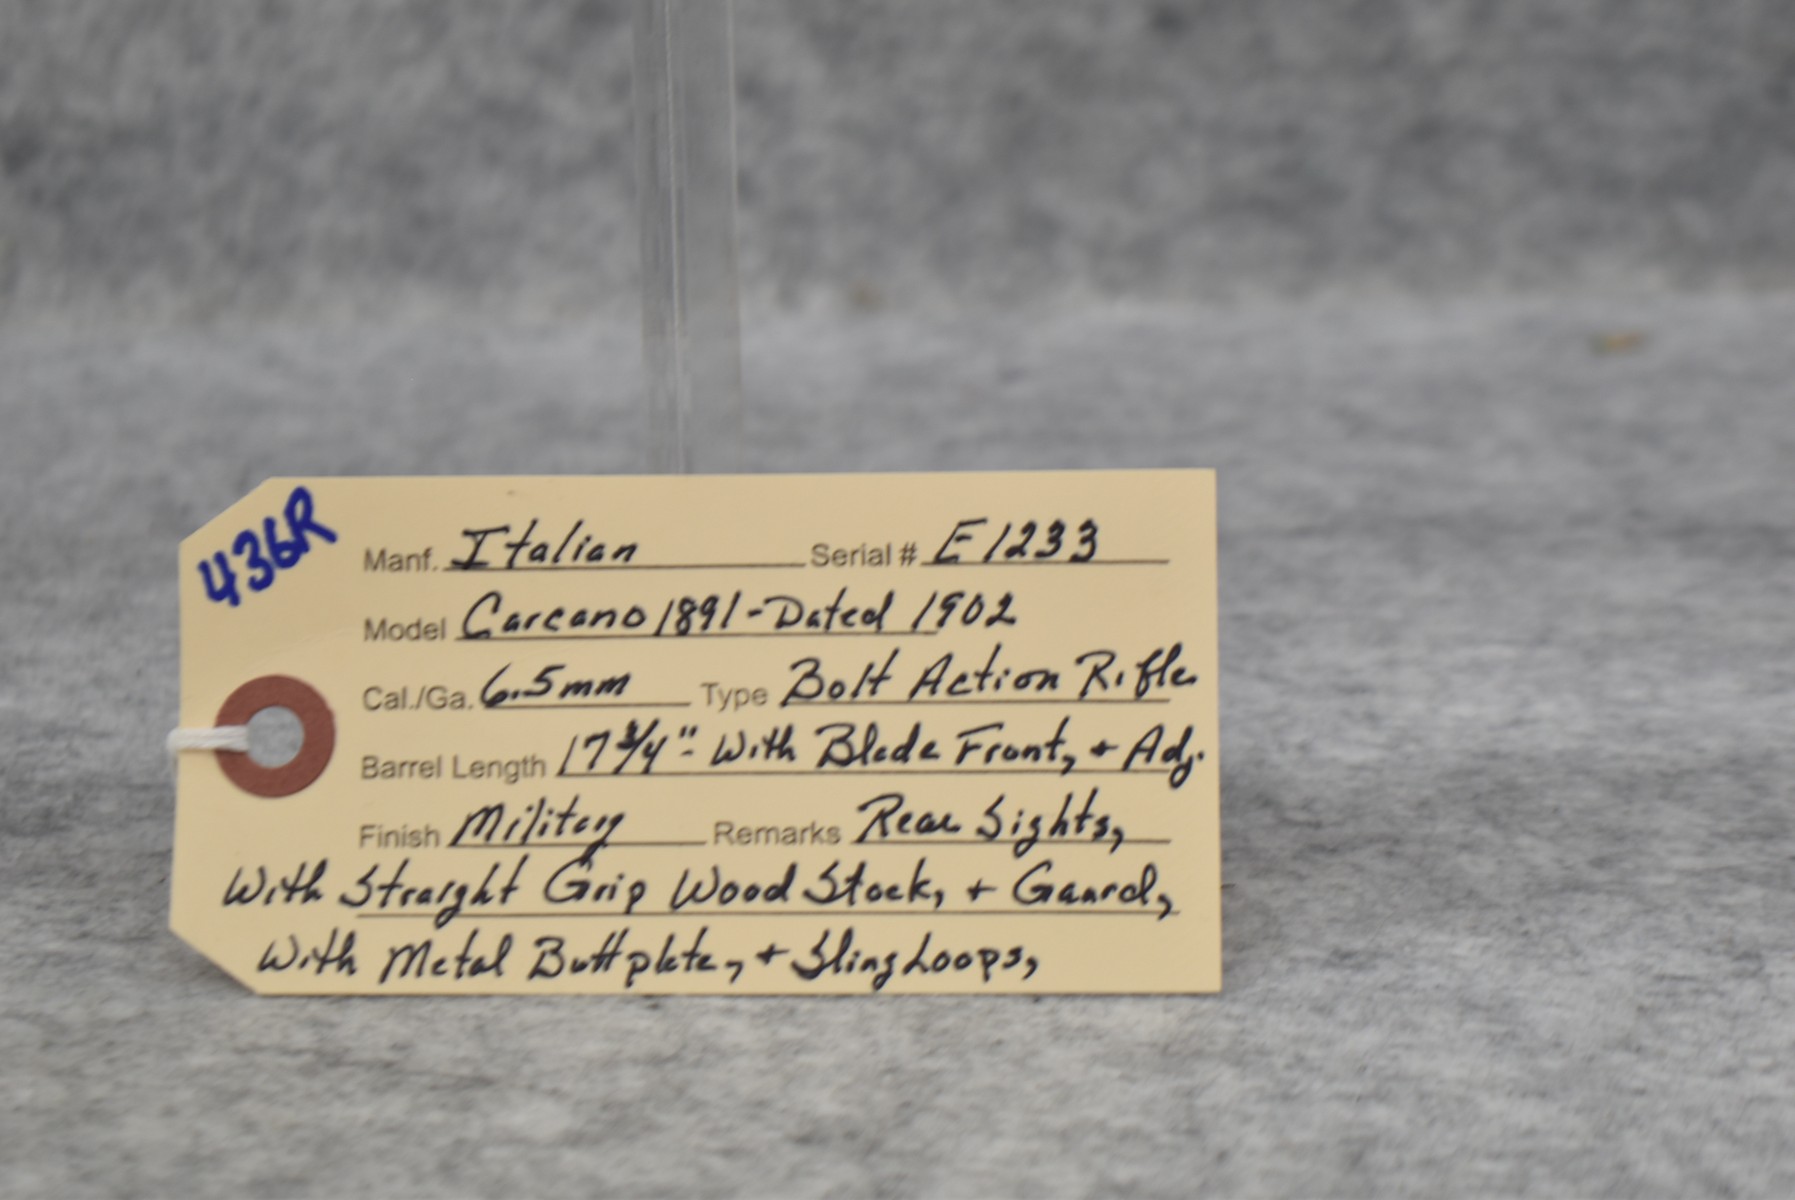 436R
Manf. Italian Serial # E1233
Model Carcano 1891-Dated 1902
Cal./Ga. 6.5mm Type Bolt Action Rifle
Barrel Length 17 3/4" - With Blade Front, + Adj.
Finish Military Remarks Rear Sights,
With Straight Grip Wood Stock, + Gaurd,
With Metal Buttplate, + Sling Loops,